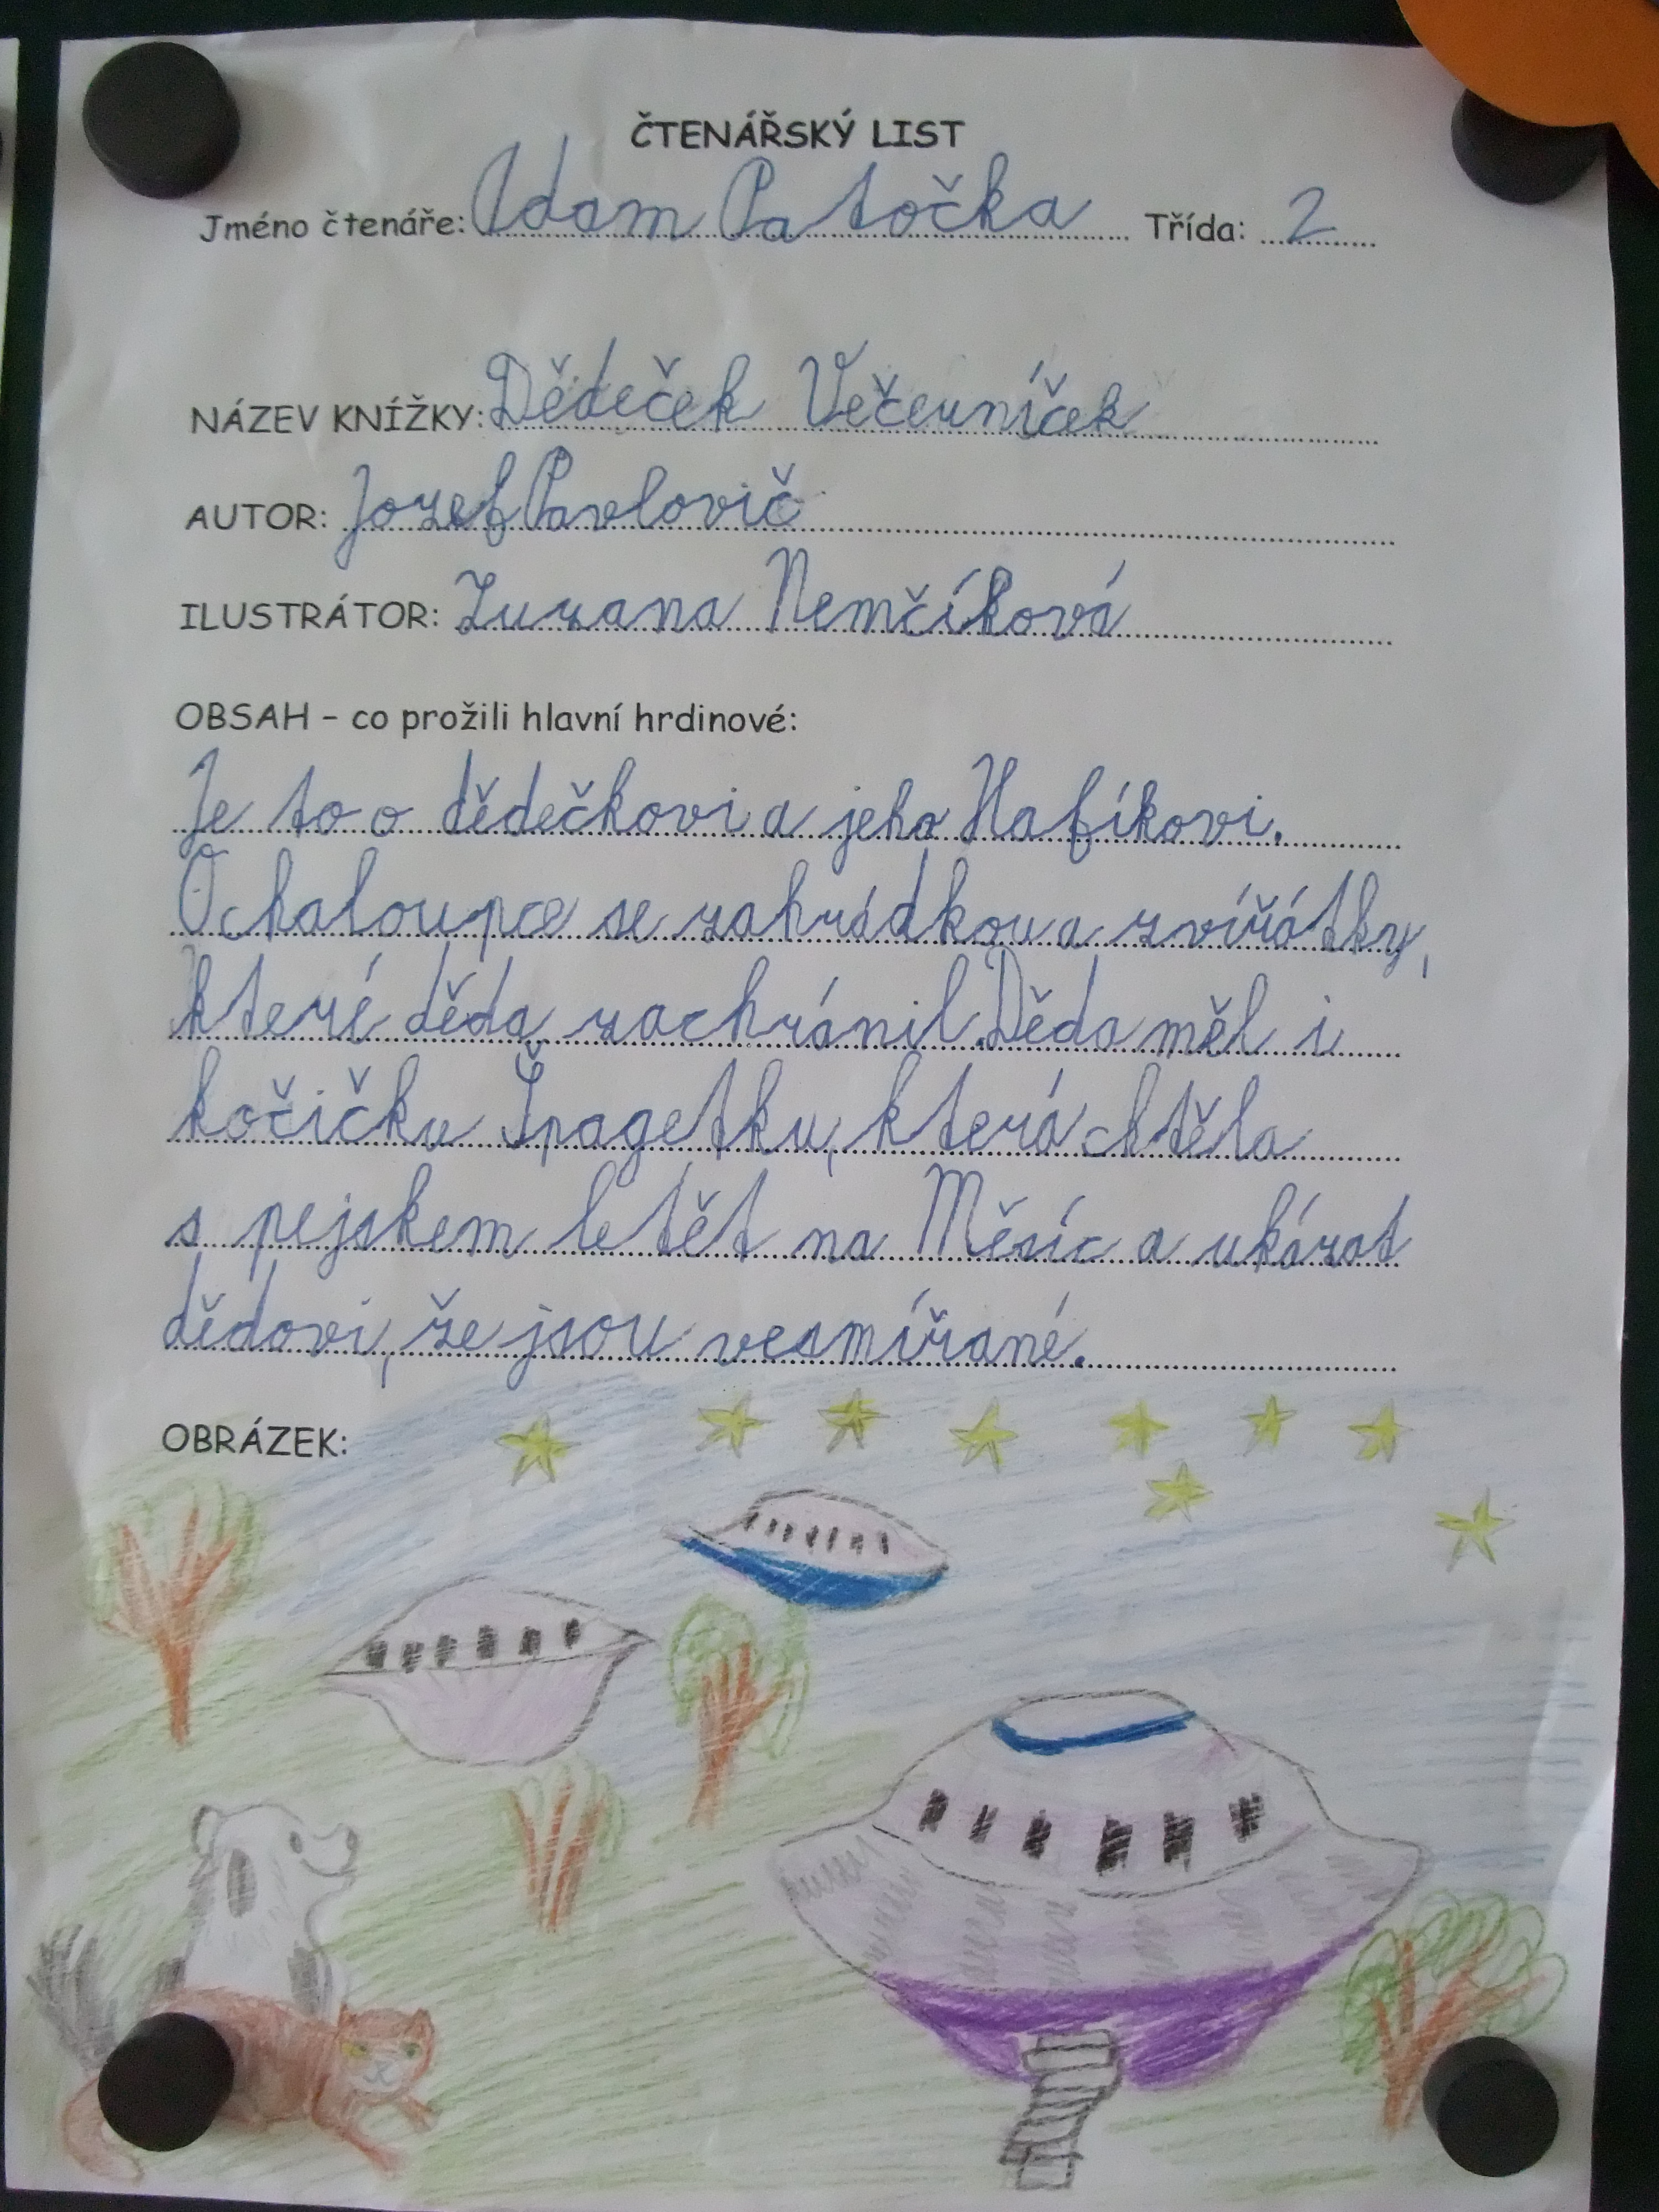 ČTENÁŘSKÝ LIST
Jméno čtenáře: Adam Patočka Třída: 2
NÁZEV KNÍŽKY: Dědeček Večerníček
AUTOR: Jozef Pavlovič
ILUSTRÁTOR: Zuzana Nemčíková
OBSAH – co prožili hlavní hrdinové:
Je to o dědečkovi a jeho Hafíkovi.
O chaloupce se zahrádkou a zvířátky,
které děda zachránil. Děda měl i
kočičku Špagetku, která chtěla
s pejskem letět na Měsíc a ukázat
dědovi, že jsou vesmířané.
OBRÁZEK: